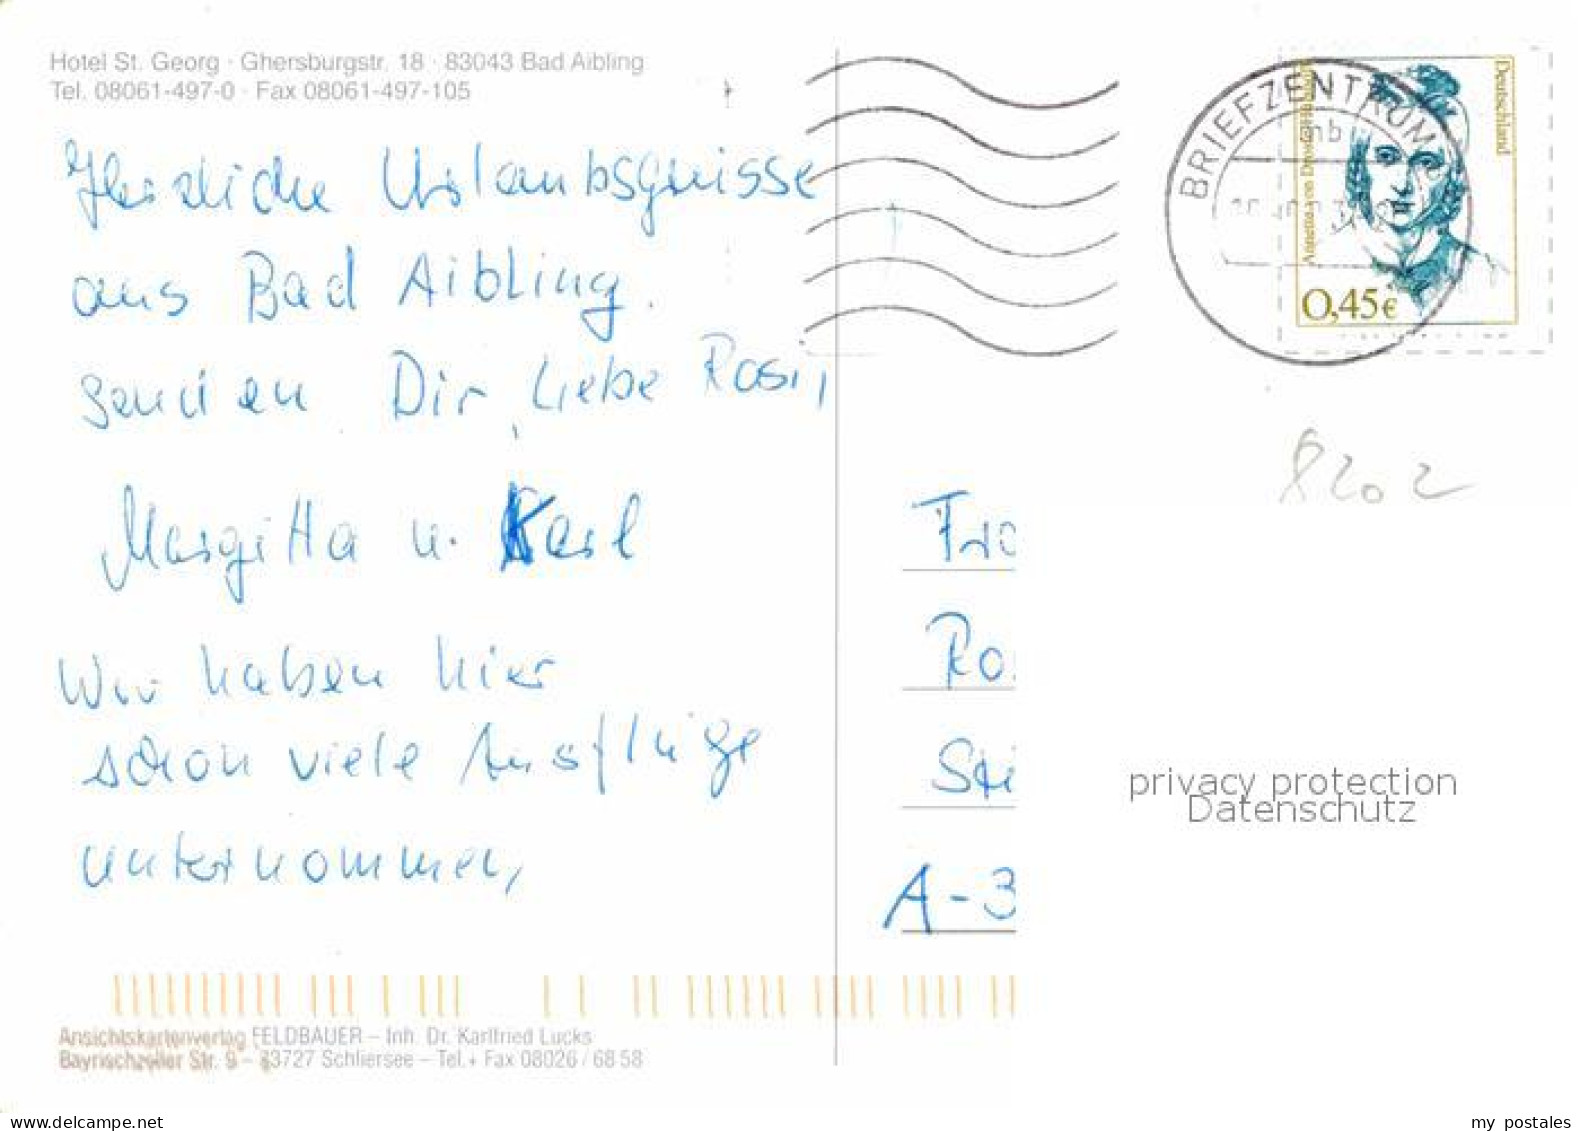 Hotel St. Georg · Ghersburgstr. 18 · 83043 Bad Aibling
Tel. 08061-497-0 · Fax 08061-497-105
Herzliche Urlaubsgrüsse
aus Bad Aibling.
senden Dir, Liebe Rosi,
Margitta u. Karl
Wir haben hier
schon viele Ausflüge
unternommen,
Ansichtskartenverlag FELDBAUER – Inh. Dr. Karlfried Lucks
Bayrischzeller Str. 9 – 83727 Schliersee – Tel.+ Fax 08026 / 68 58
BRIEFZENTRUM
mb
Deutschland
Annette von Droste-Hülshoff
0,45€
8202
Fra
Ros
Sti
A-3
privacy protection
Datenschutz
my postales
www.delcampe.net